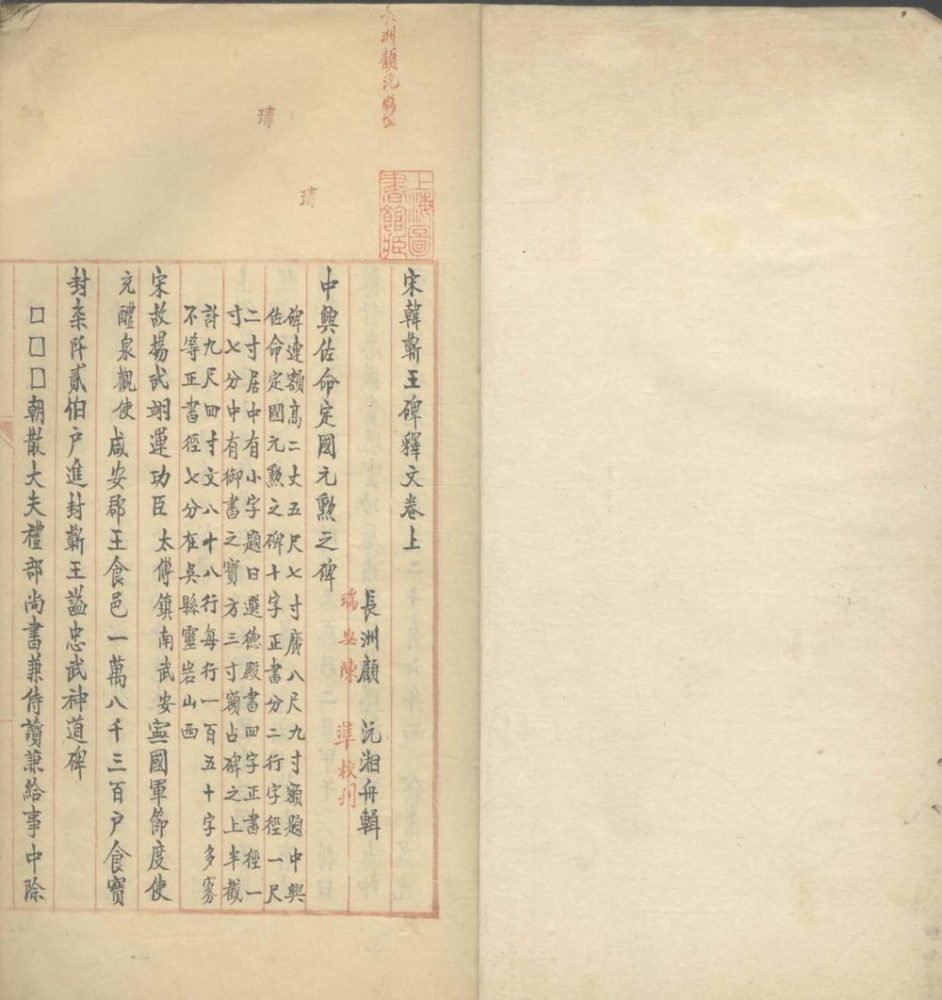 長洲顧沅
瑋
瑋
上海圖書館藏
宋韓蘄王碑釋文卷上
長洲顧 沅湘舟輯
瑞安陳 準校刊
中興佐命定國元勲之碑
碑連額高二丈五尺七寸廣八尺九寸額題中興
佐命定國元勲之碑十字正書分二行字徑一尺
二寸居中有小字題曰選德殿書四字正書徑一
寸七分中有御書之寶方三寸額占碑之上半截
計九尺四寸文八十八行每行一百五十字多寡
不等正書徑七分在吳縣靈岩山西
宋故揚武翊運功臣 太傅鎮南武安寍國軍節度使
充醴泉觀使咸安郡王食邑一萬八千三百戸食實
封柒阡貳伯户進封蘄王謚忠武神道碑
囗囗囗朝散大夫禮部尚書兼侍讀兼給事中除